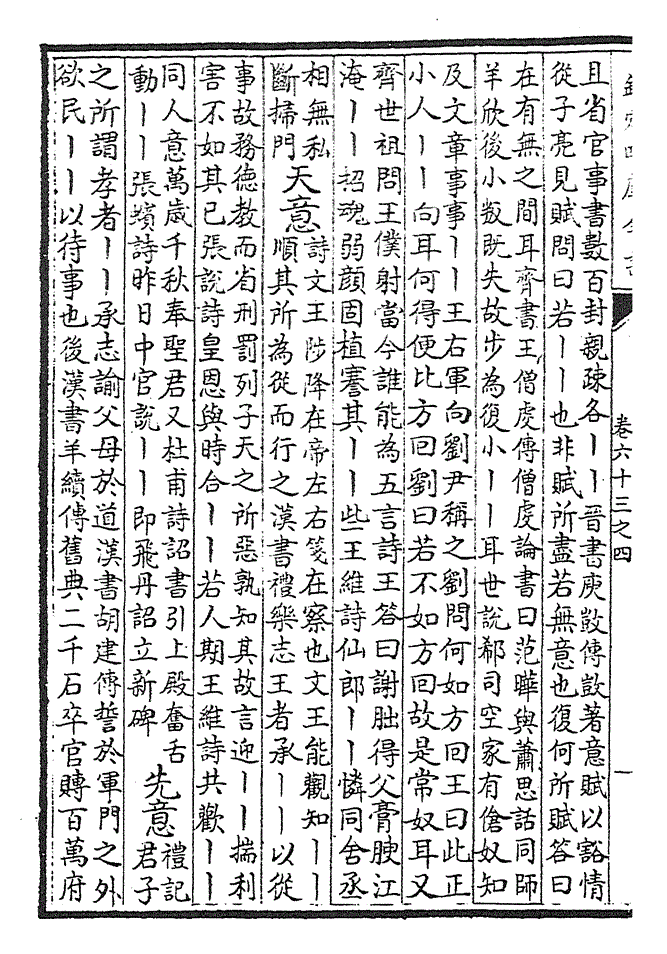 欽定四庫全書
卷六十三之四
一
且省官事書數百封親疎各丨丨晉書庾敳傳敳著意賦以豁情
從子亮見賦問曰若丨丨也非賦所盡若無意也復何所賦答曰
在有無之間耳齊書王僧虔傳僧虔論書曰范曄與蕭思話同師
羊欣後小叛既失故步為復小丨丨耳世說郗司空家有傖奴知
及文章事事丨丨王右軍向劉尹稱之劉問何如方回王曰此正
小人丨丨向耳何得便比方回劉曰若不如方回故是常奴耳又
齊世祖問王僕射當今誰能為五言詩王答曰謝朏得父膏腴江
淹丨丨招魂弱顏固植謇其丨丨些王維詩仙郎丨丨憐同舍丞
相無私
斷掃門
天意
詩文王陟降在帝左右箋在察也文王能觀知丨丨
順其所為從而行之漢書禮樂志王者承丨丨以從
事故務德教而省刑罰列子天之所惡孰知其故言迎丨丨揣利
害不如其已張說詩皇恩與時合丨丨若人期王維詩共歡丨丨
同人意萬歲千秋奉聖君又杜甫詩詔書引上殿奮舌
動丨丨張蠙詩昨日中官說丨丨即飛丹詔立新碑
先意
禮記
君子
之所謂孝者丨丨承志諭父母於道漢書胡建傳誓於軍門之外
欲民丨丨以待事也後漢書羊續傳舊典二千石卒官賻百萬府